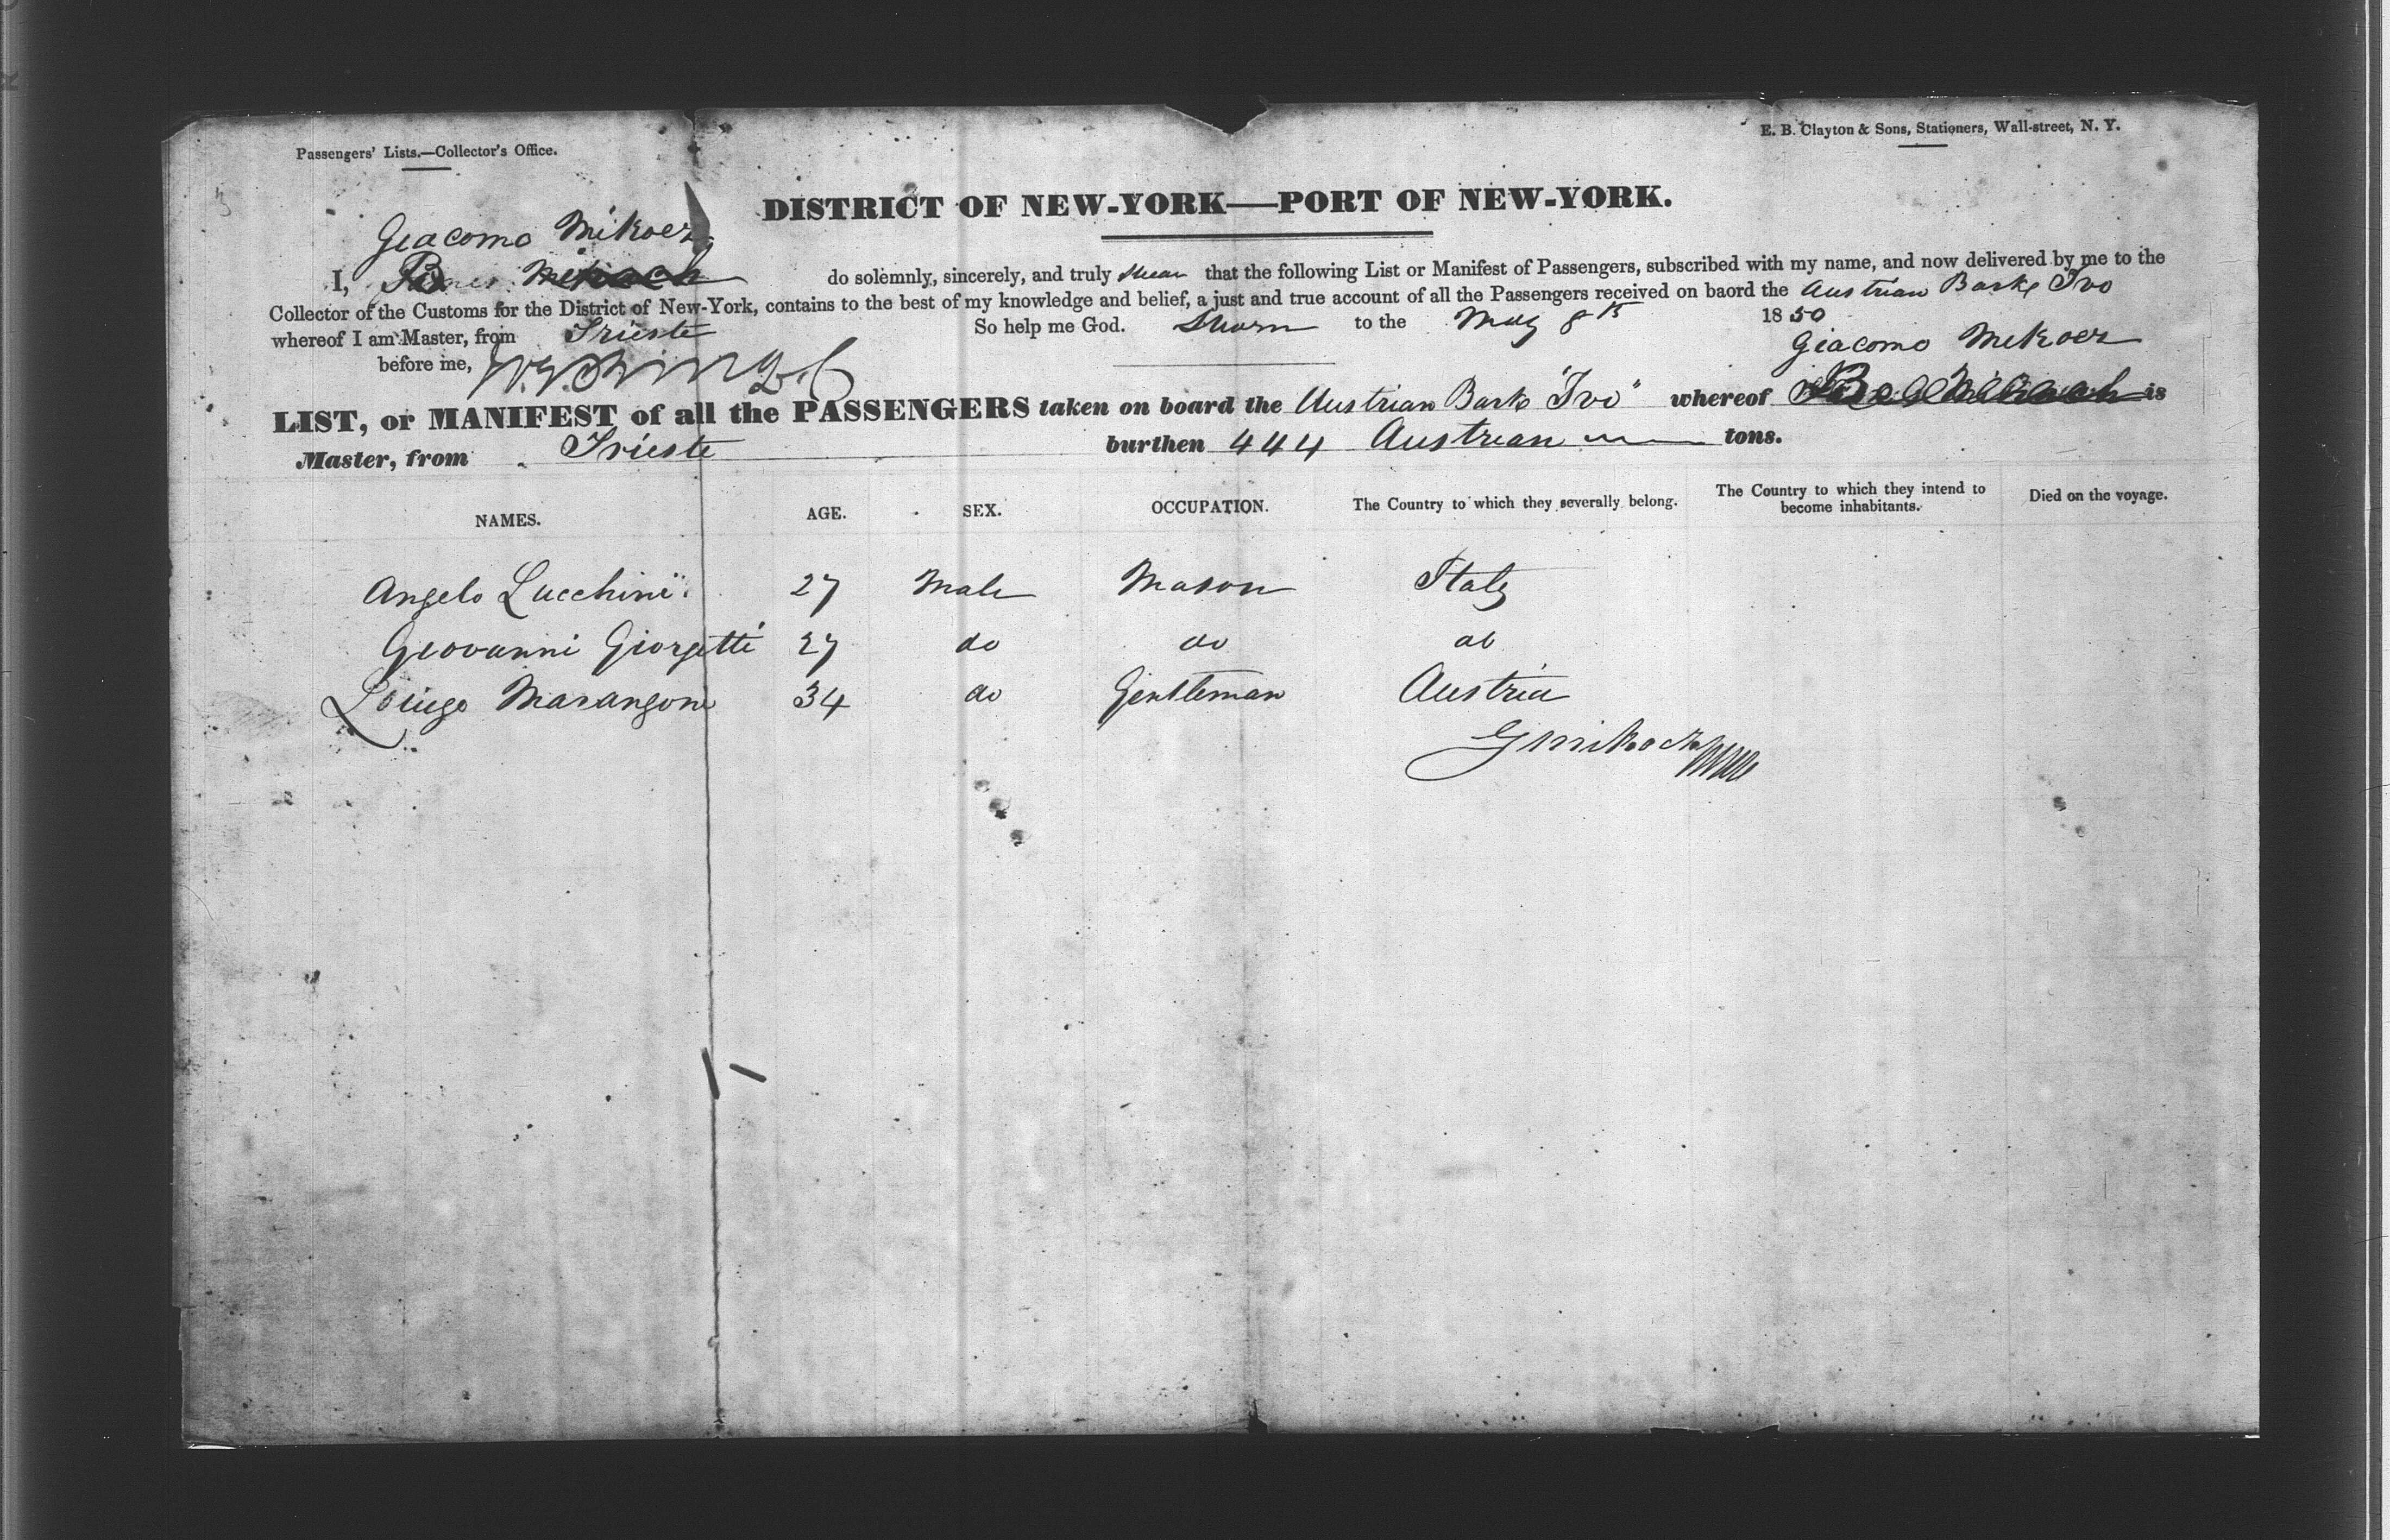 Passengers' Lists.—Collector's Office.
E. B. Clayton & Sons, Stationers, Wall-street, N. Y.
DISTRICT OF NEW-YORK—PORT OF NEW-YORK.
Giacomo Mikocz
I, do solemnly, sincerely, and truly swear that the following List or Manifest of Passengers, subscribed with my name, and now delivered by me to the
Collector of the Customs for the District of New-York, contains to the best of my knowledge and belief, a just and true account of all the Passengers received on baord the Austrian Barke Ivo
whereof I am Master, from Trieste So help me God. Sworn to the May 8th 1850
Giacomo Mekocz
before me,
LIST, or MANIFEST of all the PASSENGERS taken on board the Austrian Bark "Ivo" whereof is
Master, from Trieste burthen 444 Austrian tons.
NAMES. AGE. SEX. OCCUPATION. The Country to which they severally belong. The Country to which they intend to become inhabitants. Died on the voyage.
Angelo Lucchini 27 Male Mason Italy
Giovanni Giorgetti 27 do do do
Louigo Marangoni 34 do Gentleman Austria